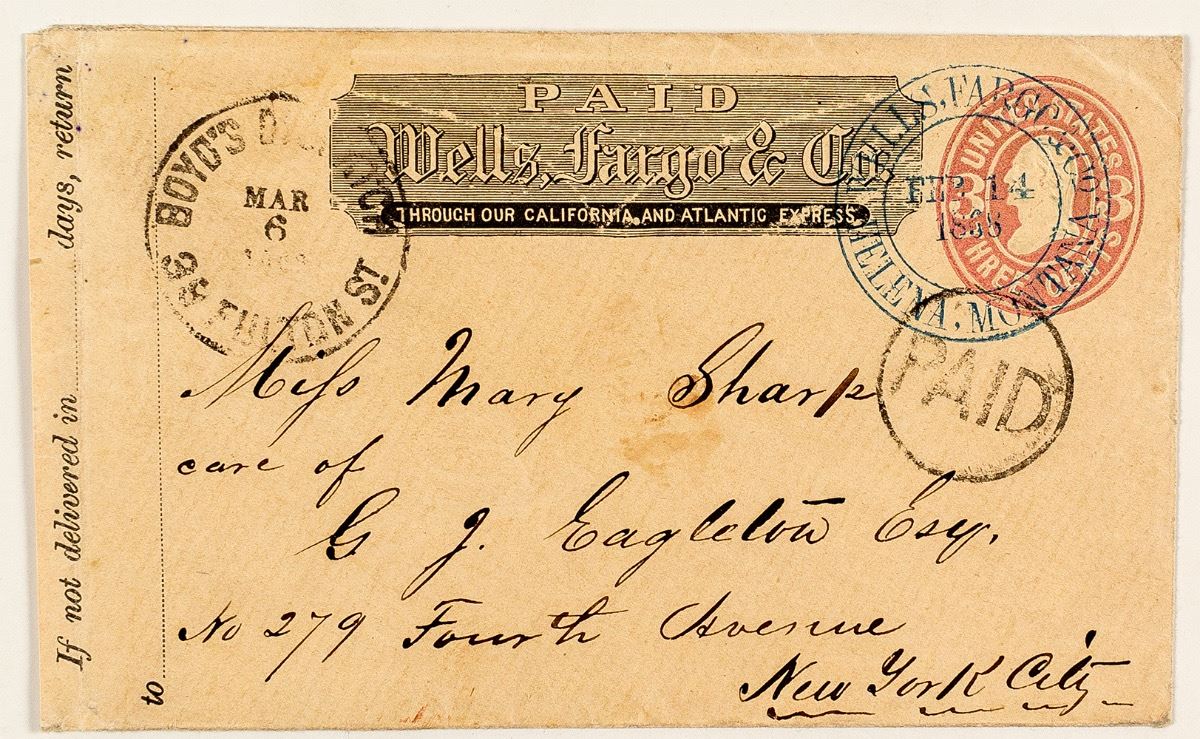 If not delivered in days, return
to
BOYD'S
MAR
6
39 FULTON ST.
PAID
Wells, Fargo & Co.
THROUGH OUR CALIFORNIA AND ATLANTIC EXPRESS.
WELLS, FARGO & CO
FEB 14
HELENA, MONTANA
UNITED STATES
3 3
THREE CENTS
PAID
Miss Mary Sharp
care of
G J. Eagleton Esq.
No 279 Fourth Avenue
New York City